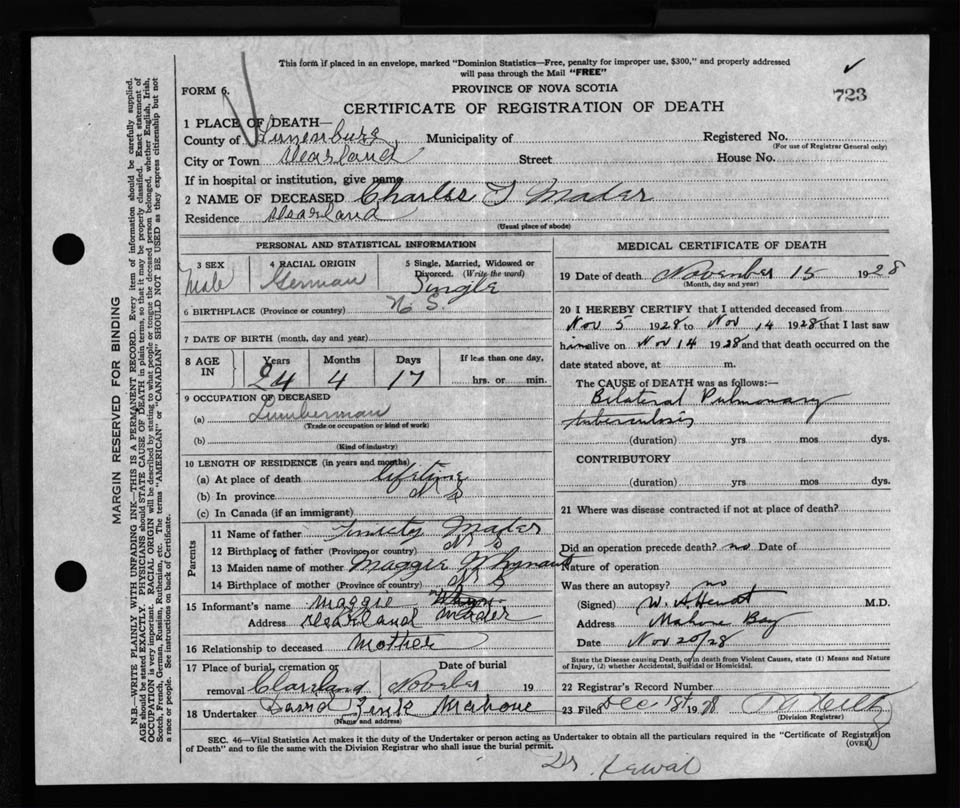 This form if placed in an envelope, marked "Dominion Statistics—Free, penalty for improper use, $300," and properly addressed
will pass through the Mail "FREE"
FORM 6.
PROVINCE OF NOVA SCOTIA
723
CERTIFICATE OF REGISTRATION OF DEATH
1 PLACE OF DEATH—
County of Lunenburg Municipality of Registered No.
(For use of Registrar General only)
City or Town Street House No.
If in hospital or institution, give name
2 NAME OF DECEASED Charles T Mader
Residence
(Usual place of abode)
PERSONAL AND STATISTICAL INFORMATION
3 SEX 4 RACIAL ORIGIN 5 Single, Married, Widowed or
Divorced. (Write the word)
Male German Single
6 BIRTHPLACE (Province or country) N S.
7 DATE OF BIRTH (month, day and year)
8 AGE IN Years Months Days If less than one day,
24 4 17 hrs. or min.
9 OCCUPATION OF DECEASED
(a) Lumberman
(Trade or occupation or kind of work)
(b)
(Kind of industry)
10 LENGTH OF RESIDENCE (in years and months)
(a) At place of death lifetime
(b) In province N S
(c) In Canada (if an immigrant)
Parents
11 Name of father Mader
12 Birthplace of father (Province or country) N S
13 Maiden name of mother Maggie
14 Birthplace of mother (Province of country) N S
15 Informant's name Maggie Mader
Address
16 Relationship to deceased Mother
17 Place of burial, cremation or Date of burial
removal 19
18 Undertaker David Zink Mahone
(Name and address)
MEDICAL CERTIFICATE OF DEATH
19 Date of death November 15 1928
(Month, day and year)
20 I HEREBY CERTIFY that I attended deceased from
Nov 5 1928 to Nov 14 1928 that I last saw
him alive on Nov 14 1928 and that death occurred on the
date stated above, at m.
The CAUSE of DEATH was as follows:—
Bilateral Pulmonary
tuberculosis
(duration) yrs mos dys.
CONTRIBUTORY
(duration) yrs mos dys.
21 Where was disease contracted if not at place of death?
Did an operation precede death? no Date of
Nature of operation
Was there an autopsy? no
(Signed) M.D.
Address Mahone Bay
Date Nov 20/28
State the Disease causing Death, or in death from Violent Causes, state (1) Means and Nature
of Injury, (2) whether Accidental, Suicidal or Homicidal.
22 Registrar's Record Number
23 Filed Dec 18th 1928
(Division Registrar)
SEC. 46—Vital Statistics Act makes it the duty of the Undertaker or person acting as Undertaker to obtain all the particulars required in the "Certificate of Registration
of Death" and to file the same with the Division Registrar who shall issue the burial permit.
(OVER)
Dr.
MARGIN RESERVED FOR BINDING
N.B.—WRITE PLAINLY WITH UNFADING INK—THIS IS A PERMANENT RECORD. Every item of information should be carefully supplied.
AGE should be stated EXACTLY. PHYSICIANS should STATE CAUSE OF DEATH in plain terms, so that it may be properly classified. Exact statement of
OCCUPATION is very important. RACIAL ORIGIN will be described by stating to what people or tongue the deceased person belonged, whether English, Irish,
Scotch, French, German, Russian, Ruthenian, etc. The terms "AMERICAN" or "CANADIAN" SHOULD NOT BE USED as they express citizenship but not
a race or people. See instructions on back of Certificate.